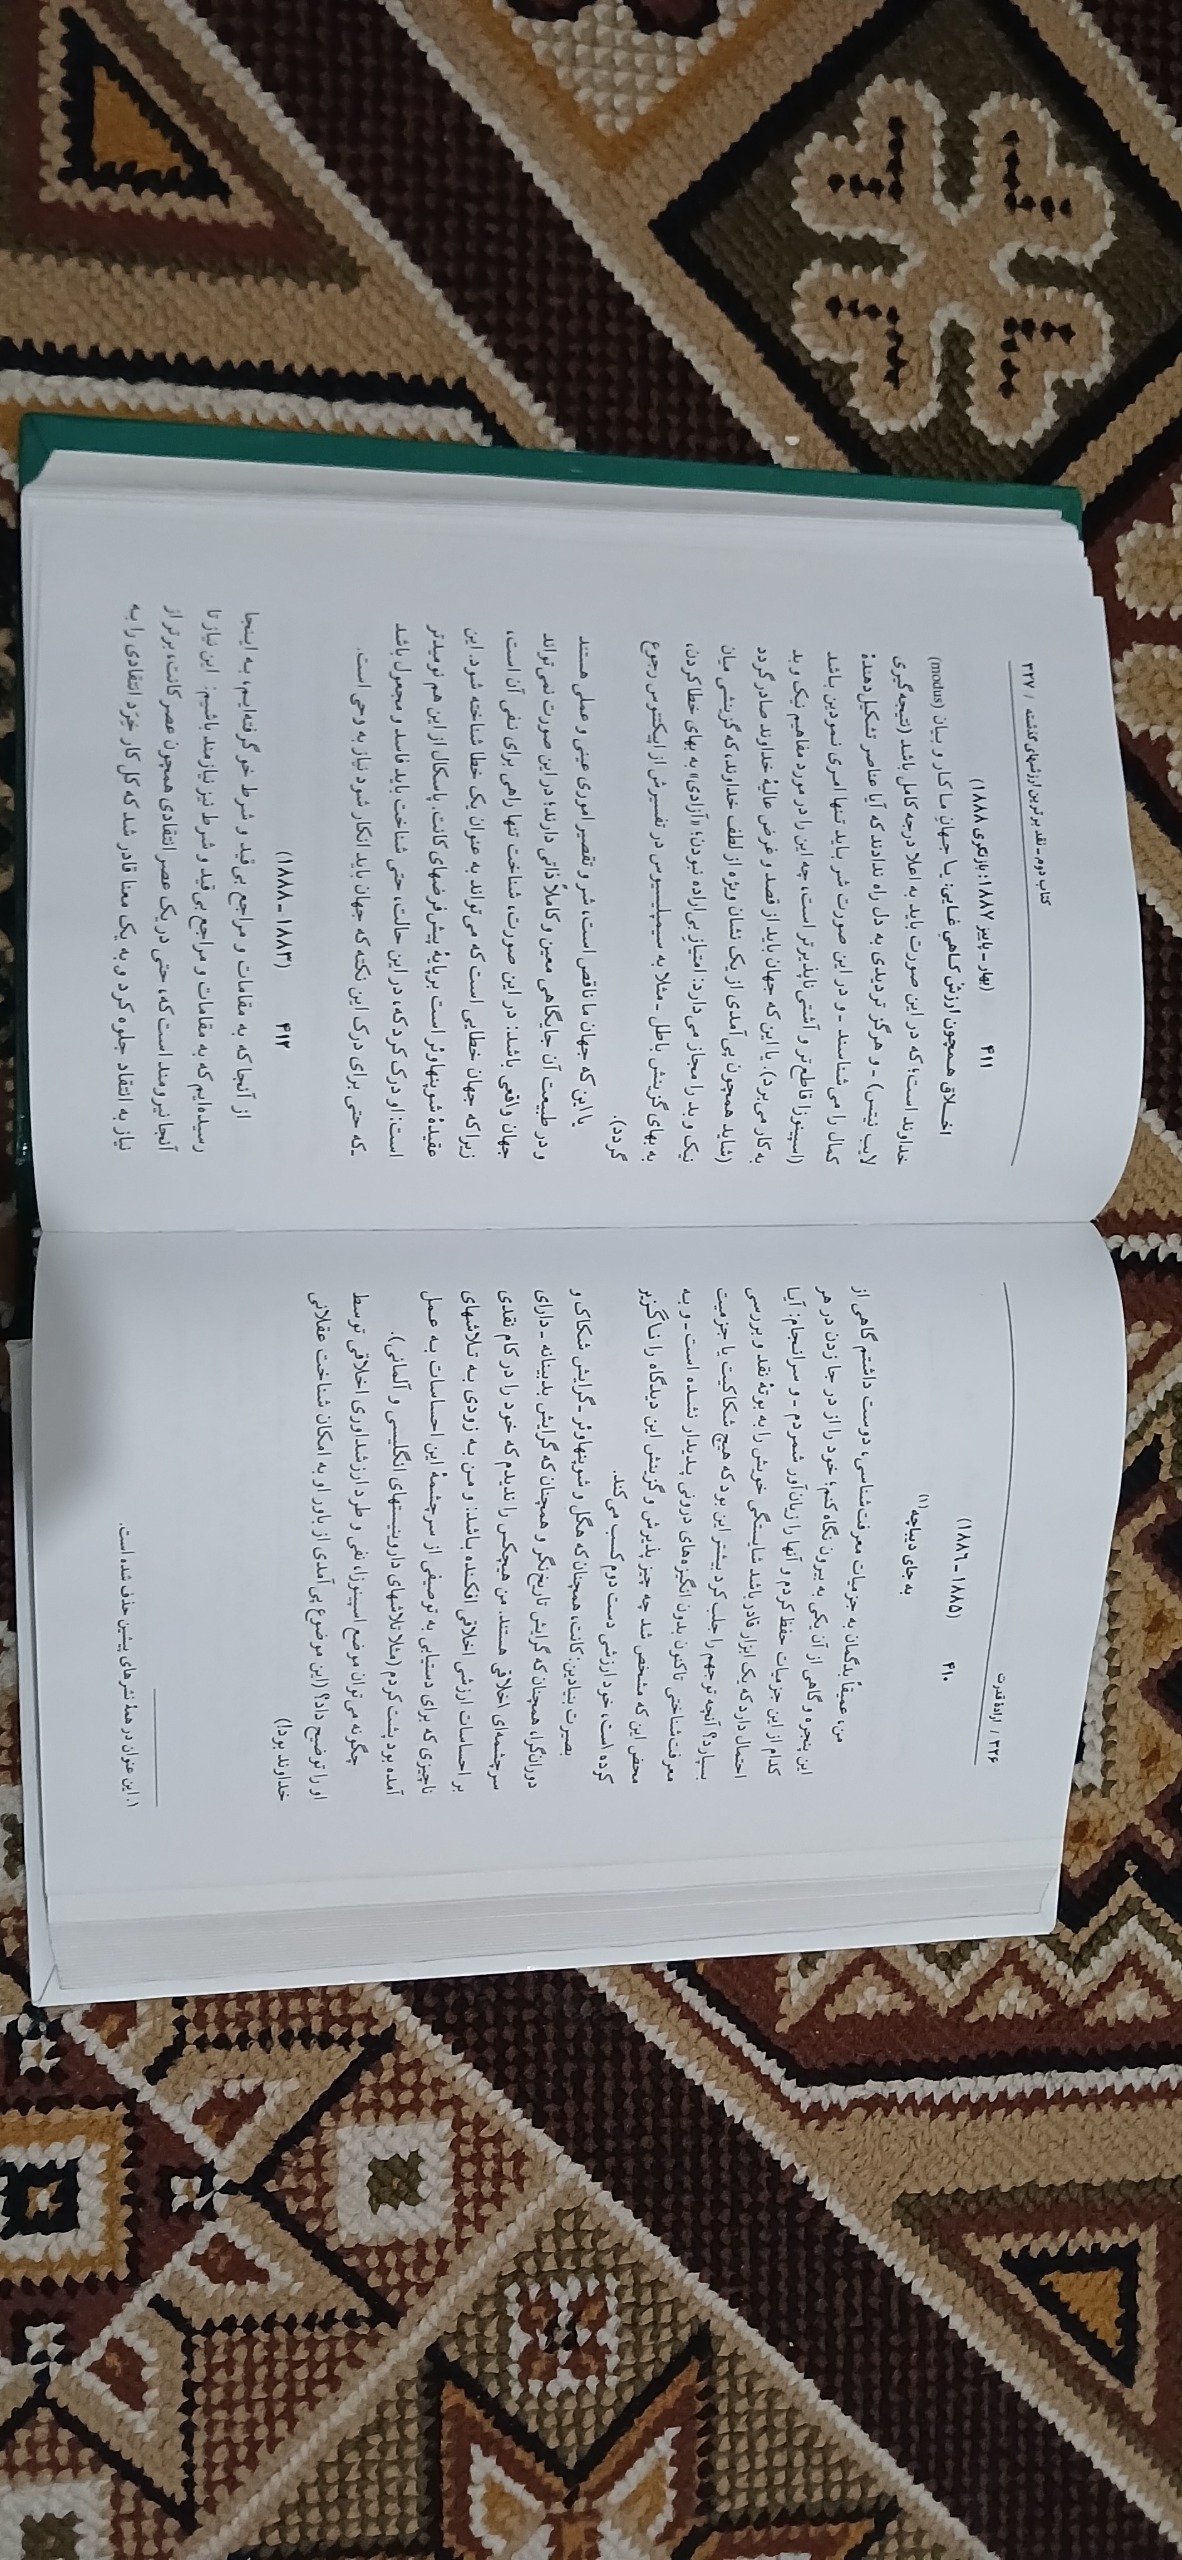 ۳۲۶ / ارادهٔ قدرت
۴۱۰
(۱۸۸۵-۱۸۸۶)
به جای دیباچه (۱)
من، عمیقاً بدگمان به جزمیات معرفت‌شناسی، دوست داشتم گاهی از
این پنجره و گاهی از آن یکی به بیرون نگاه کنم؛ خود را از در جا زدن در هر
کدام از این جزمیات حفظ کردم و آنها را زیان‌آور شمردم - و سرانجام: آیا
احتمال دارد که یک ابزار قادر باشد شایستگی خویش را به بوتهٔ نقد و بررسی
بسپارد؟ آنچه توجهم را جلب کرد بیشتر این بود که هیچ شکاکیت یا جزمیت
معرفت‌شناختی تاکنون بدون انگیزه‌های درونی پدیدار نشده است - و به
محض این که مشخص شد چه چیز پذیرش و گزینش این دیدگاه را ناگزیر
کرده است، خود ارزشی دست دوم کسب می‌کند.
بصیرت بنیادین: کانت، همچنان که هگل و شوپنهاوئر - گرایش شکاک و
دوران‌گرا، همچنان که گرایش تاریخ‌نگر و همچنان که گرایش بدبینانه - دارای
سرچشمه‌ای اخلاقی هستند. من هیچکس را ندیدم که خود را در کام نقدی
بر احساسات ارزشی اخلاقی افکنده باشد: و من به زودی به تلاشهای
ناچیزی که برای دستیابی به توصیفی از سرچشمهٔ این احساسات به عمل
آمده بود پشت کردم (مثلا تلاشهای داروینیستهای انگلیسی و آلمانی).
چگونه می‌توان موضع اسپینوزا، نفی و طرد ارزشداوری اخلاقی توسط
او را توضیح داد؟ (این موضوع پی‌آمدی از باور او به امکان شناخت عقلانی
خداوند بود!)
۱. این عنوان در همهٔ نشرهای پیشین حذف شده است.
کتاب دوم-نقد برترین ارزشهای گذشته / ۳۲۷
۴۱۱
(بهار - پاییز ۱۸۸۷؛ بازنگری ۱۸۸۸)
اخلاق همچون ارزش گاهی غایی: یا جهان ما کار و بیان (modus)
خداوند است؛ که در این صورت باید به اعلا درجه کامل باشد (نتیجه‌گیری
لایب نیتس) - و هرگز تردیدی به دل راه ندادند که آیا عناصر تشکیل‌دهندهٔ
کمال را می‌شناسند - و در این صورت شر باید تنها امری نمودین باشد
(اسپینوزا قاطع‌تر و آشتی ناپذیرتر است، چه این را در مورد مفاهیم نیک و بد
به کار می‌برد). یا این که جهان باید از قصد و غرض عالیهٔ خداوند صادر گردد
(شاید همچون پی‌آمدی از یک نشان ویژه از لطف خداوند، که گزینشی میان
نیک و بد را مجاز می‌دارد: امتیاز بی‌اراده نبودن؛ «آزادی» به بهای خطا کردن،
به بهای گزینش باطل - مثلا به سیمپلیسیوس در تفسیرش از اپیکتتوس رجوع
گردد).
یا این که جهان ما ناقص است، شر و تقصیر اموری عینی و عملی هستند
و در طبیعت آن جایگاهی معین و کاملاً ذاتی دارند؛ در این صورت نمی‌تواند
جهان واقعی باشد: در این صورت، شناخت تنها راهی برای نفی آن است،
زیرا که جهان خطایی است که می‌تواند به عنوان یک خطا شناخته شود. این
عقیدهٔ شوپنهاوئر است برپایهٔ پیش‌فرضهای کانت. پاسکال از این هم نومیدتر
است: او درک کرد که، در این حالت، حتی شناخت باید فاسد و مجعول باشد
-که حتی برای درک این نکته که جهان باید انکار شود نیاز به وحی است.
۴۱۲
(۱۸۸۳-۱۸۸۸)
از آنجا که به مقامات و مراجع بی‌قید و شرط خو گرفته‌ایم، به اینجا
رسیده‌ایم که به مقامات و مراجع بی‌قید و شرط نیز نیازمند باشیم: این نیاز تا
آنجا نیرومند است که، حتی در یک عصر انتقادی همچون عصر کانت، برتر از
نیاز به انتقاد جلوه کرد و به یک معنا قادر شد که کل کار خِرَد انتقادی را به